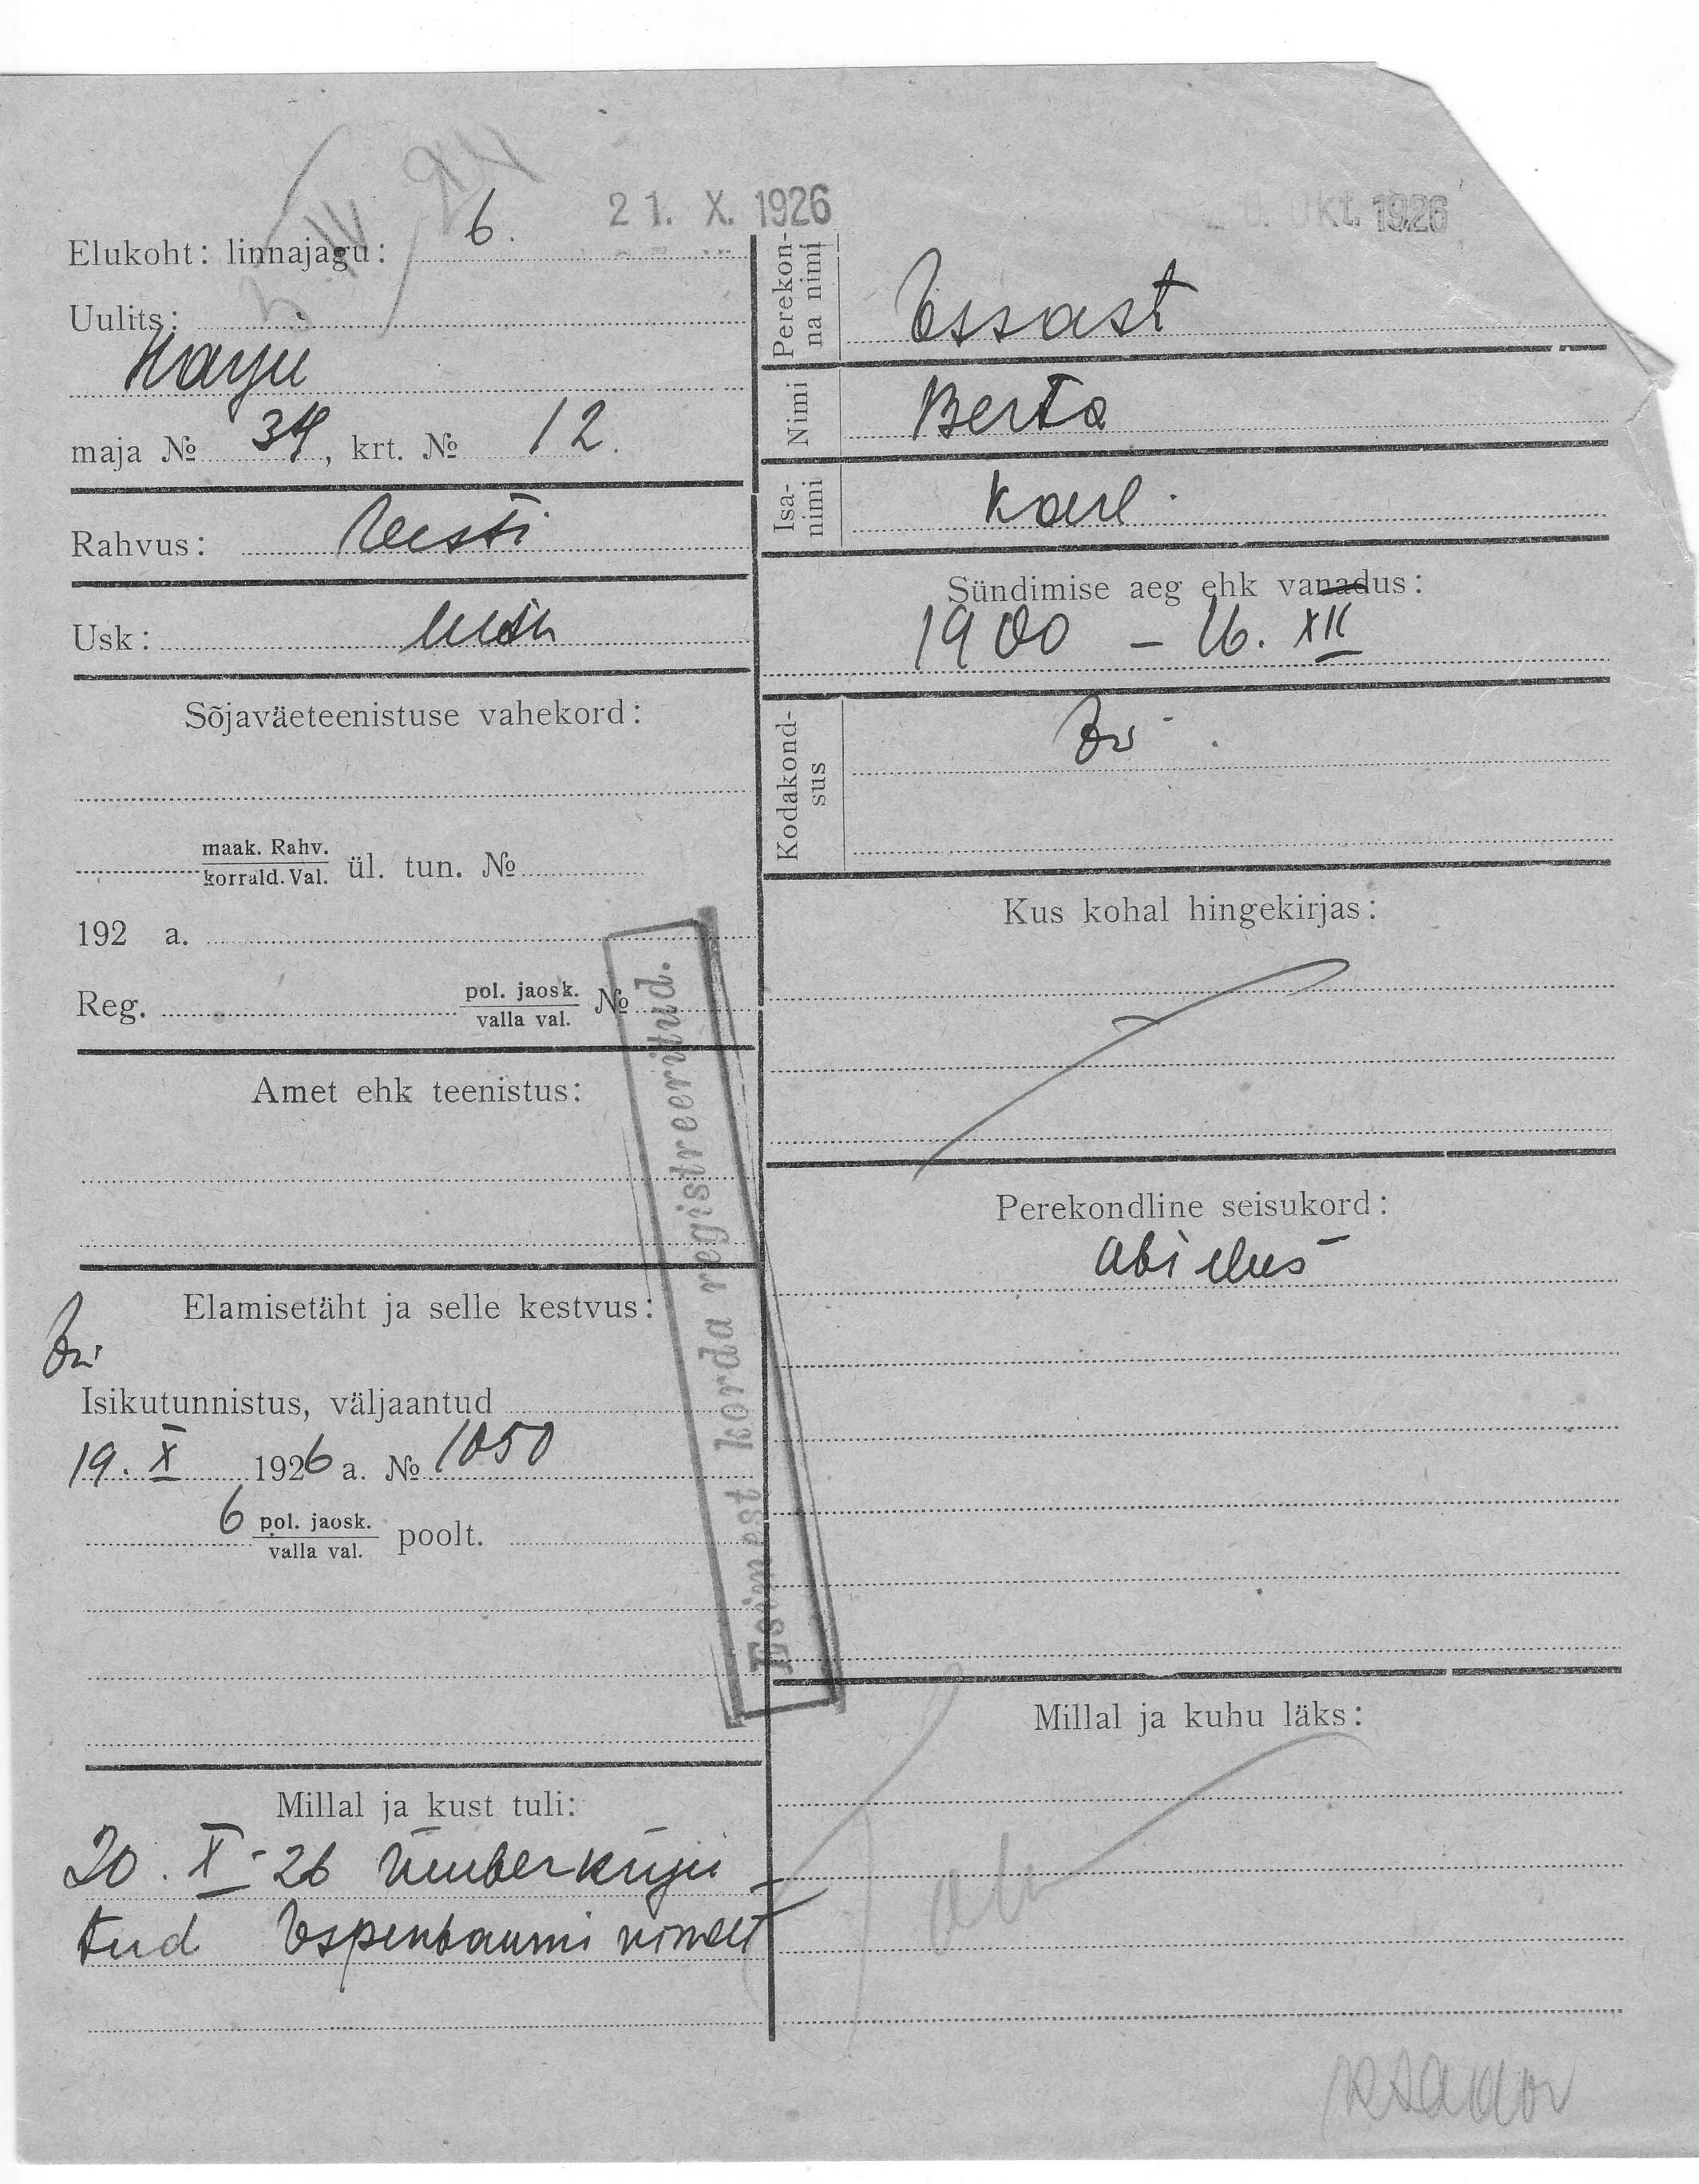 21. X. 1926
Okt. 1926
Elukoht: linnajagu: 6.
Uulits:
Harju
maja № 34, krt. № 12.
Rahvus: Eesti
Usk: luth
Sõjaväeteenistuse vahekord:
maak. Rahv.
korrald. Val. ül. tun. №
192 a.
Reg. pol. jaosk. №
valla val.
Amet ehk teenistus:
Elamisetäht ja selle kestvus:
Isikutunnistus, väljaantud
19. X 1926 a. № 1050
6 pol. jaosk. poolt.
valla val.
Millal ja kust tuli:
20. X - 26 Ümberkirju-
tud Espenbaumi nimelt
Esimest korda registreeritud.
Perekon-
na nimi Essast
Nimi Berta
Isa-
nimi Karl
Sündimise aeg ehk vanadus:
1900 - 16. XII
Kodakond-
sus
Kus kohal hingekirjas:
Perekondline seisukord:
abielus
Millal ja kuhu läks: